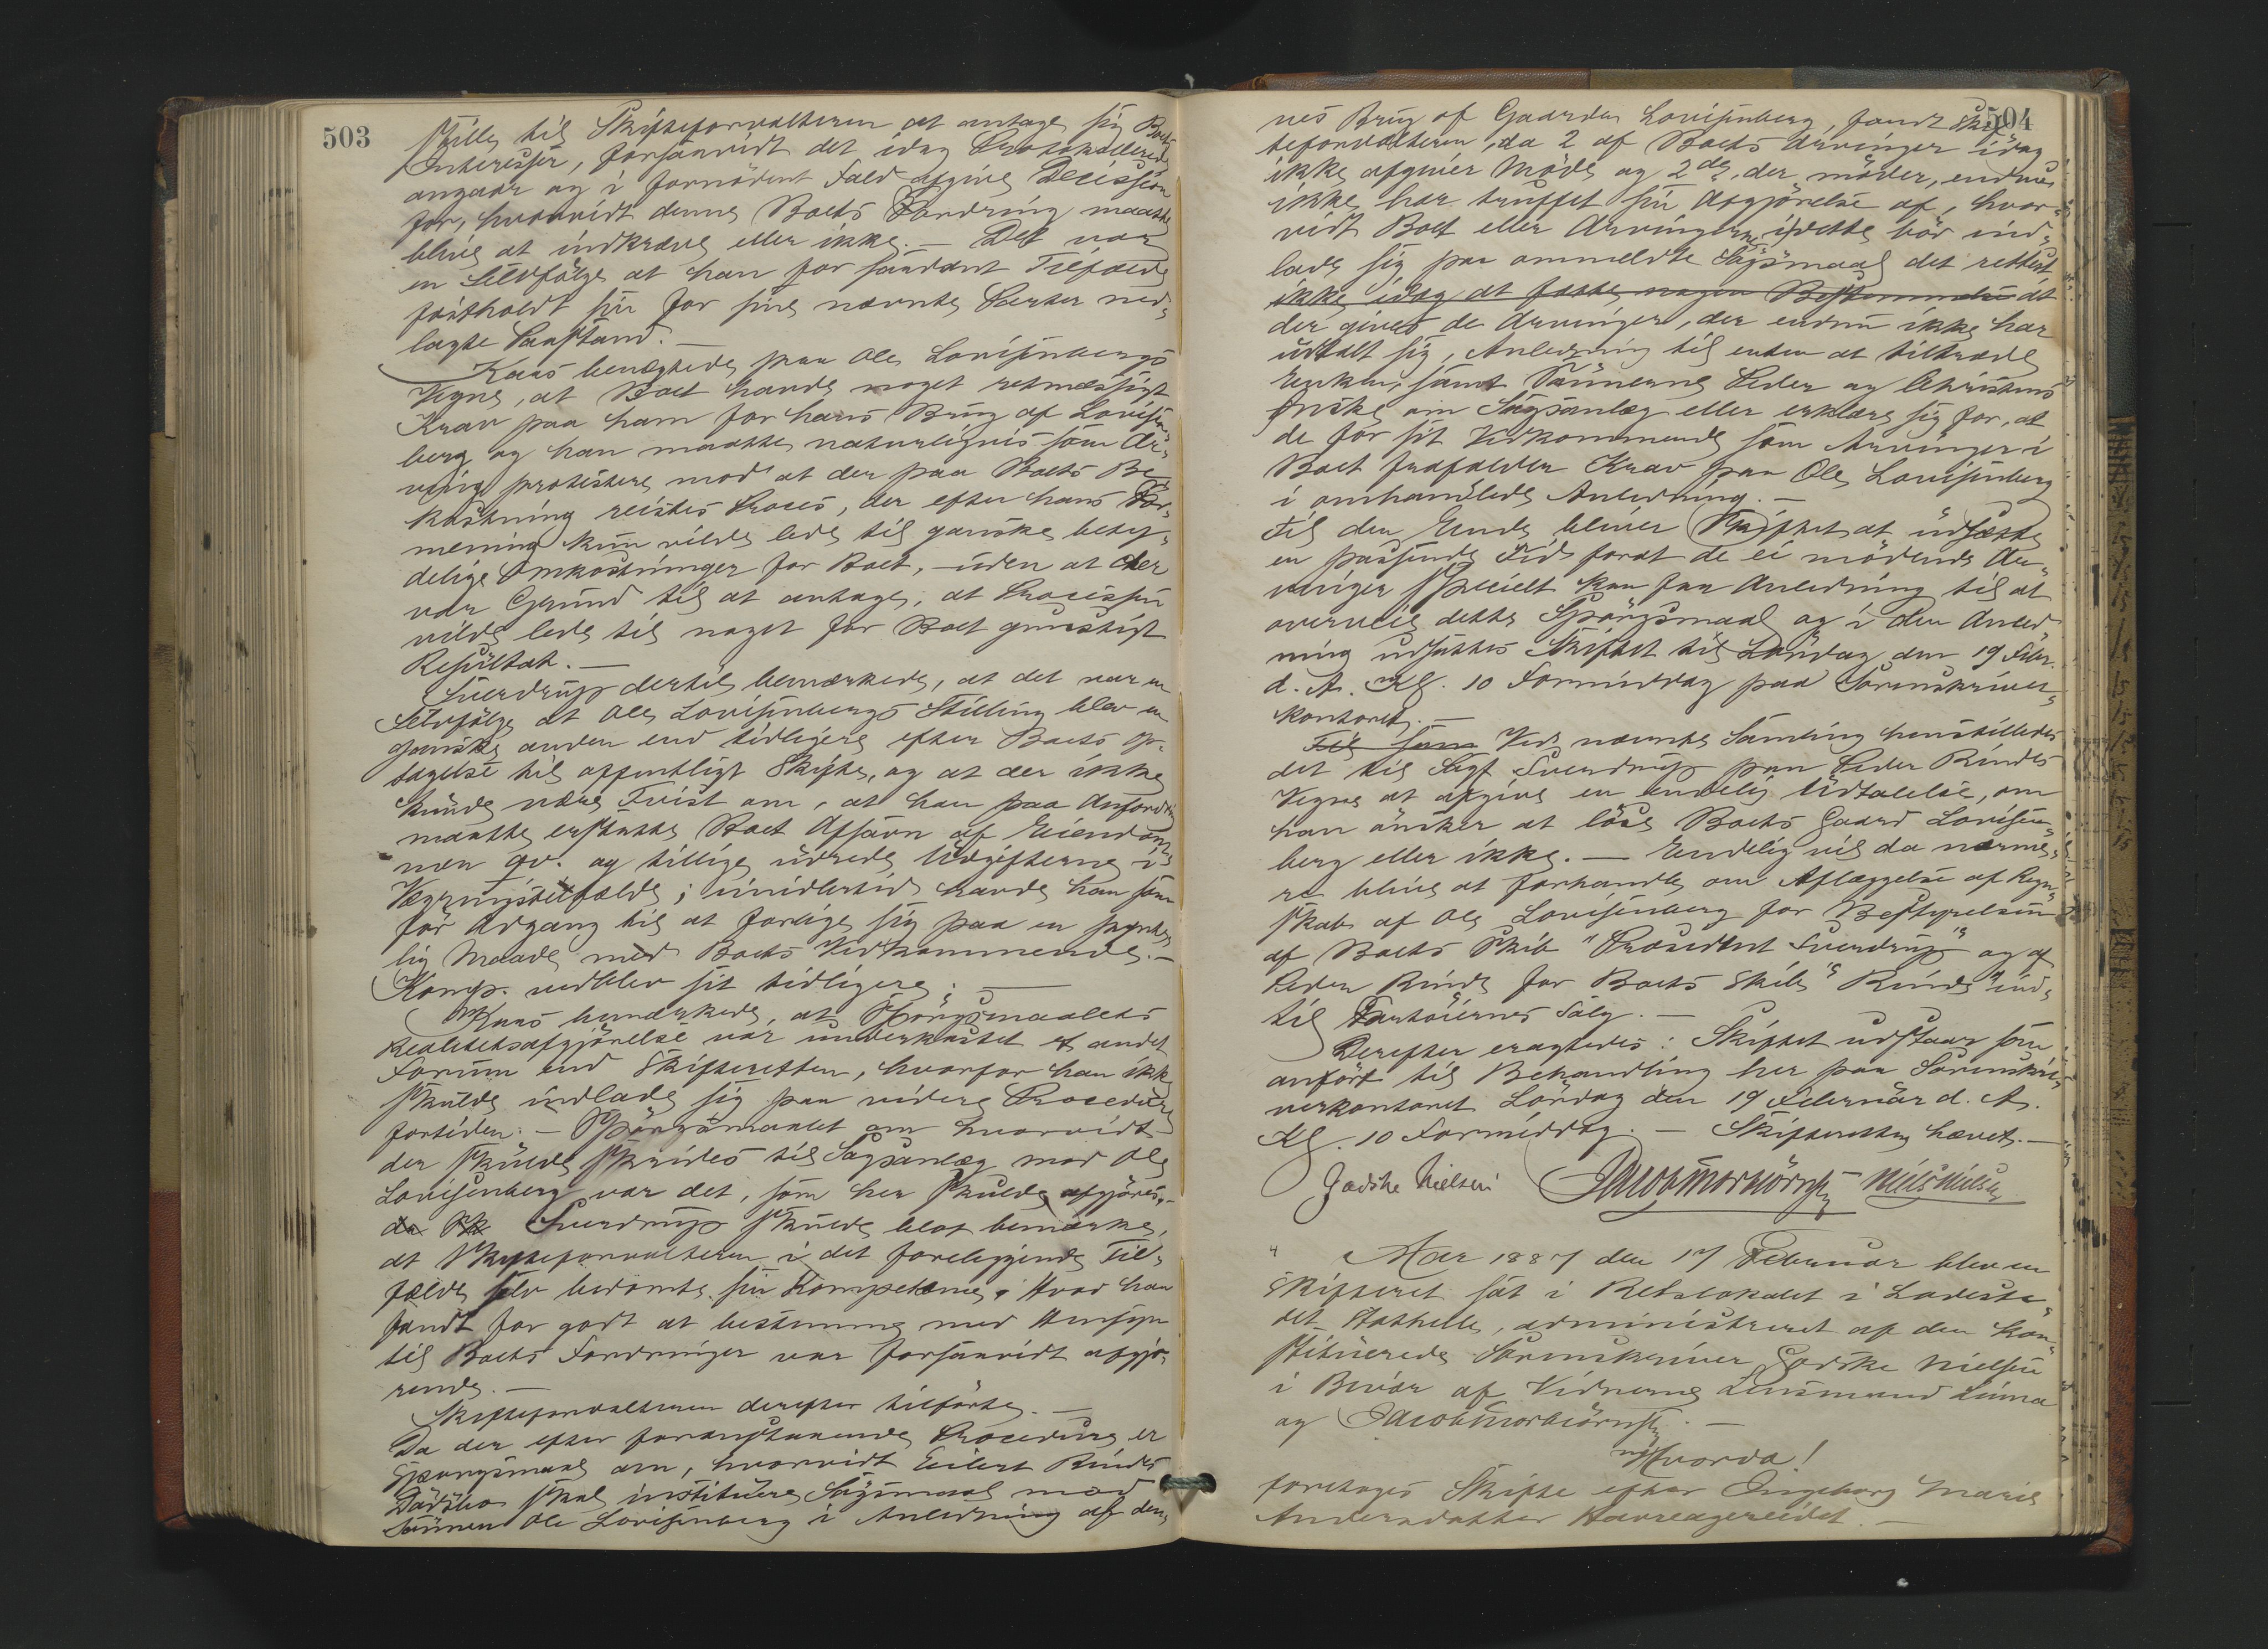 503
stille til Skifteforvalteren at antage sig Boets
Interesser, forsaavidt det idag Protokollerede
angaar og i fornödent Fald afgive Decission
for, hvorvidt denne Boets Fordring maatte
blive at indkræve eller ikke. — Det var
en Selvfölge at han for saadant Tilfælde
fastholdt sin for sine nævnte Parter ned-
lagte Paastand. —
Kaas benegtede paa Ole Louisenbergs
Vegne, at Boet havde noget retmæssigt
Krav paa ham for hans Brug af Louisen-
berg og han maatte naturligvis som Ar-
ving protestere mod at der paa Boets Be-
kostning reistes Proces, der efter hans For-
mening kun vilde lede til ganske bety-
delige Omkostninger for Boet, — uden at der
var Grund til at antage, at Processen
vilde lede til noget for Boet gunstigt
Resultat. —
Sverdrup dertil bemærkede, at det var en
Selvfölge at Ole Louisenbergs Stilling blev en
ganske anden end tidligere efter Boets Op-
tagelse til offentligt Skifte, og at der ikke
kunde være Tvist om, at han paa Anfordring
maatte erstatte Boet Afsavn af Eiendom-
men qv. og tillige udrede Udgifterne i
Vægringstilfælde; imidlertid havde han som
för Adgang til at forlige sig paa en
lig Maade med Boets Vedkommende. —
Komp. vedblev sit tidligere. —
Kaas bemærkede, at Spörgsmaalets
Realitetsafgjörelse var underkastet et andet
Forum end Skifteretten, hvorfor han ikke
skulde indlade sig paa videre Procedure
fortiden. — Spörgsmaalet om hvorvidt
der skulde skrides til Sagsanlæg mod Ole
Louisenberg var det, som her skulde afgjöres. —
da Sk Sverdrup skulde blot bemærke,
at Skifteforvalteren i det foreliggende Til-
fælde selv bedömte sin Kompetance. Hvad han
fandt for godt at bestemme med Hensyn
til Boets Fordringer var forsaavidt afgjö-
rende. —
Skifteforvalteren derefter tilförte. —
Da der efter foranstaaende Procedure er
Spörgsmaal om, hvorvidt Eilert Rinds
Dödsbo skal instituere Sögsmaal mod
Sönnen Ole Louisenberg i Anledning af den-
504
nes Brug af Gaarden Louisenberg, fandt Skif-
teforvalteren, da 2 af Boets Arvinger idag
ikke afgiver Möde og 2de, der möder, endnu
ikke har truffet sin Afgjörelse af, hvor-
vidt Boet eller Arvingerne i dette bör ind-
lade sig paa anmeldte Sögsmaal det rettest
ikke idag at fatte nogen Bestemmelse at
der gives de Arvinger, der endnu ikke har
udtalt sig, Anledning til enten at tiltræde
Enken, samt Sönnerne Peder og Christens
Önske om Sagsanlæg eller erklære sig for, at
de for sit Vedkommende som Arvinger i
Boet frafalder Krav paa Ole Louisenberg
i omhandlede Anledning. —
Til den Ende bliver Skiftet at udsætte
en passende Tid forat de ei mödende Ar-
vinger specielt kan faa Anledning til at
overveie dette Spörgsmaal og i den Anled-
ning udsættes Skiftet til Lördag den 19 Febr.
d. A. Kl. 10 Formiddag paa Sorenskriver-
kontoret. —
Til sam Ved nævnte Samling henstilledes
det til Sagf. Sverdrup paa Peder Rindes
Vegne at afgive en endelig Udtalelse, om
han önsker at löse Boets Gaard Louisen-
berg eller ikke. — Endelig vil da nærme-
re blive at forhandle om Aflæggelse af Regn-
skab af Ole Louisenberg for Bestyrelsen
af Boets Skib "Præsident Sverdrup" og af
Peder Rinde for Boets Skib "Rinde" ind-
til Fartöiernes Salg. —
Derefter eragtedes: Skiftet udstaar som
anfört til Behandling her paa Sorenskri-
verkontoret Lördag den 19 Februar d. A.
Kl. 10 Formiddag. — Skifteretten hævet. —
Godske Nielsen Jacob Thorbiörnsen Niels Nielsen
Aar 1887 den 17 Februar blev en
Skifteret sat i Retslokalet i Ladeste-
det Stathelle, administreret af den kon-
stituerede Sorenskriver Godske Nielsen
i Bivær af Vidnerne Lensmand Linna
og Jacob Thorbiörnsen. —
Hvorda!
foretoges Skifte efter Ingeborg Marie
Andersdatter